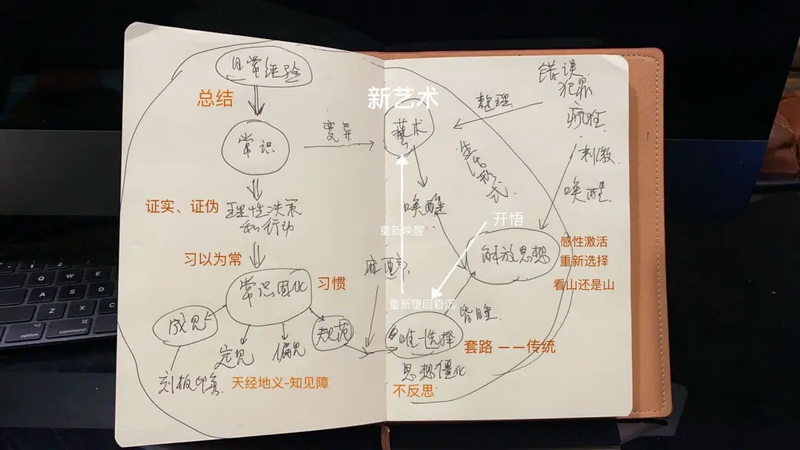 日常经验
总结
常识
变异
证实、证伪
理性决策
和行动
习以为常
常识固化
习惯
成见
定见
偏见
规范
刻板印象
天经地义-知见障
新艺术
藝术
整理
错误
犯罪
疯狂
刺激
唤醒
生活形式
唤醒
开悟
重新唤醒
解放思想
感性激活
重新选择
看山还是山
麻醉
重新堕回昏沉
昏睡
唯一选择
套路 ——传统
思想僵化
不反思